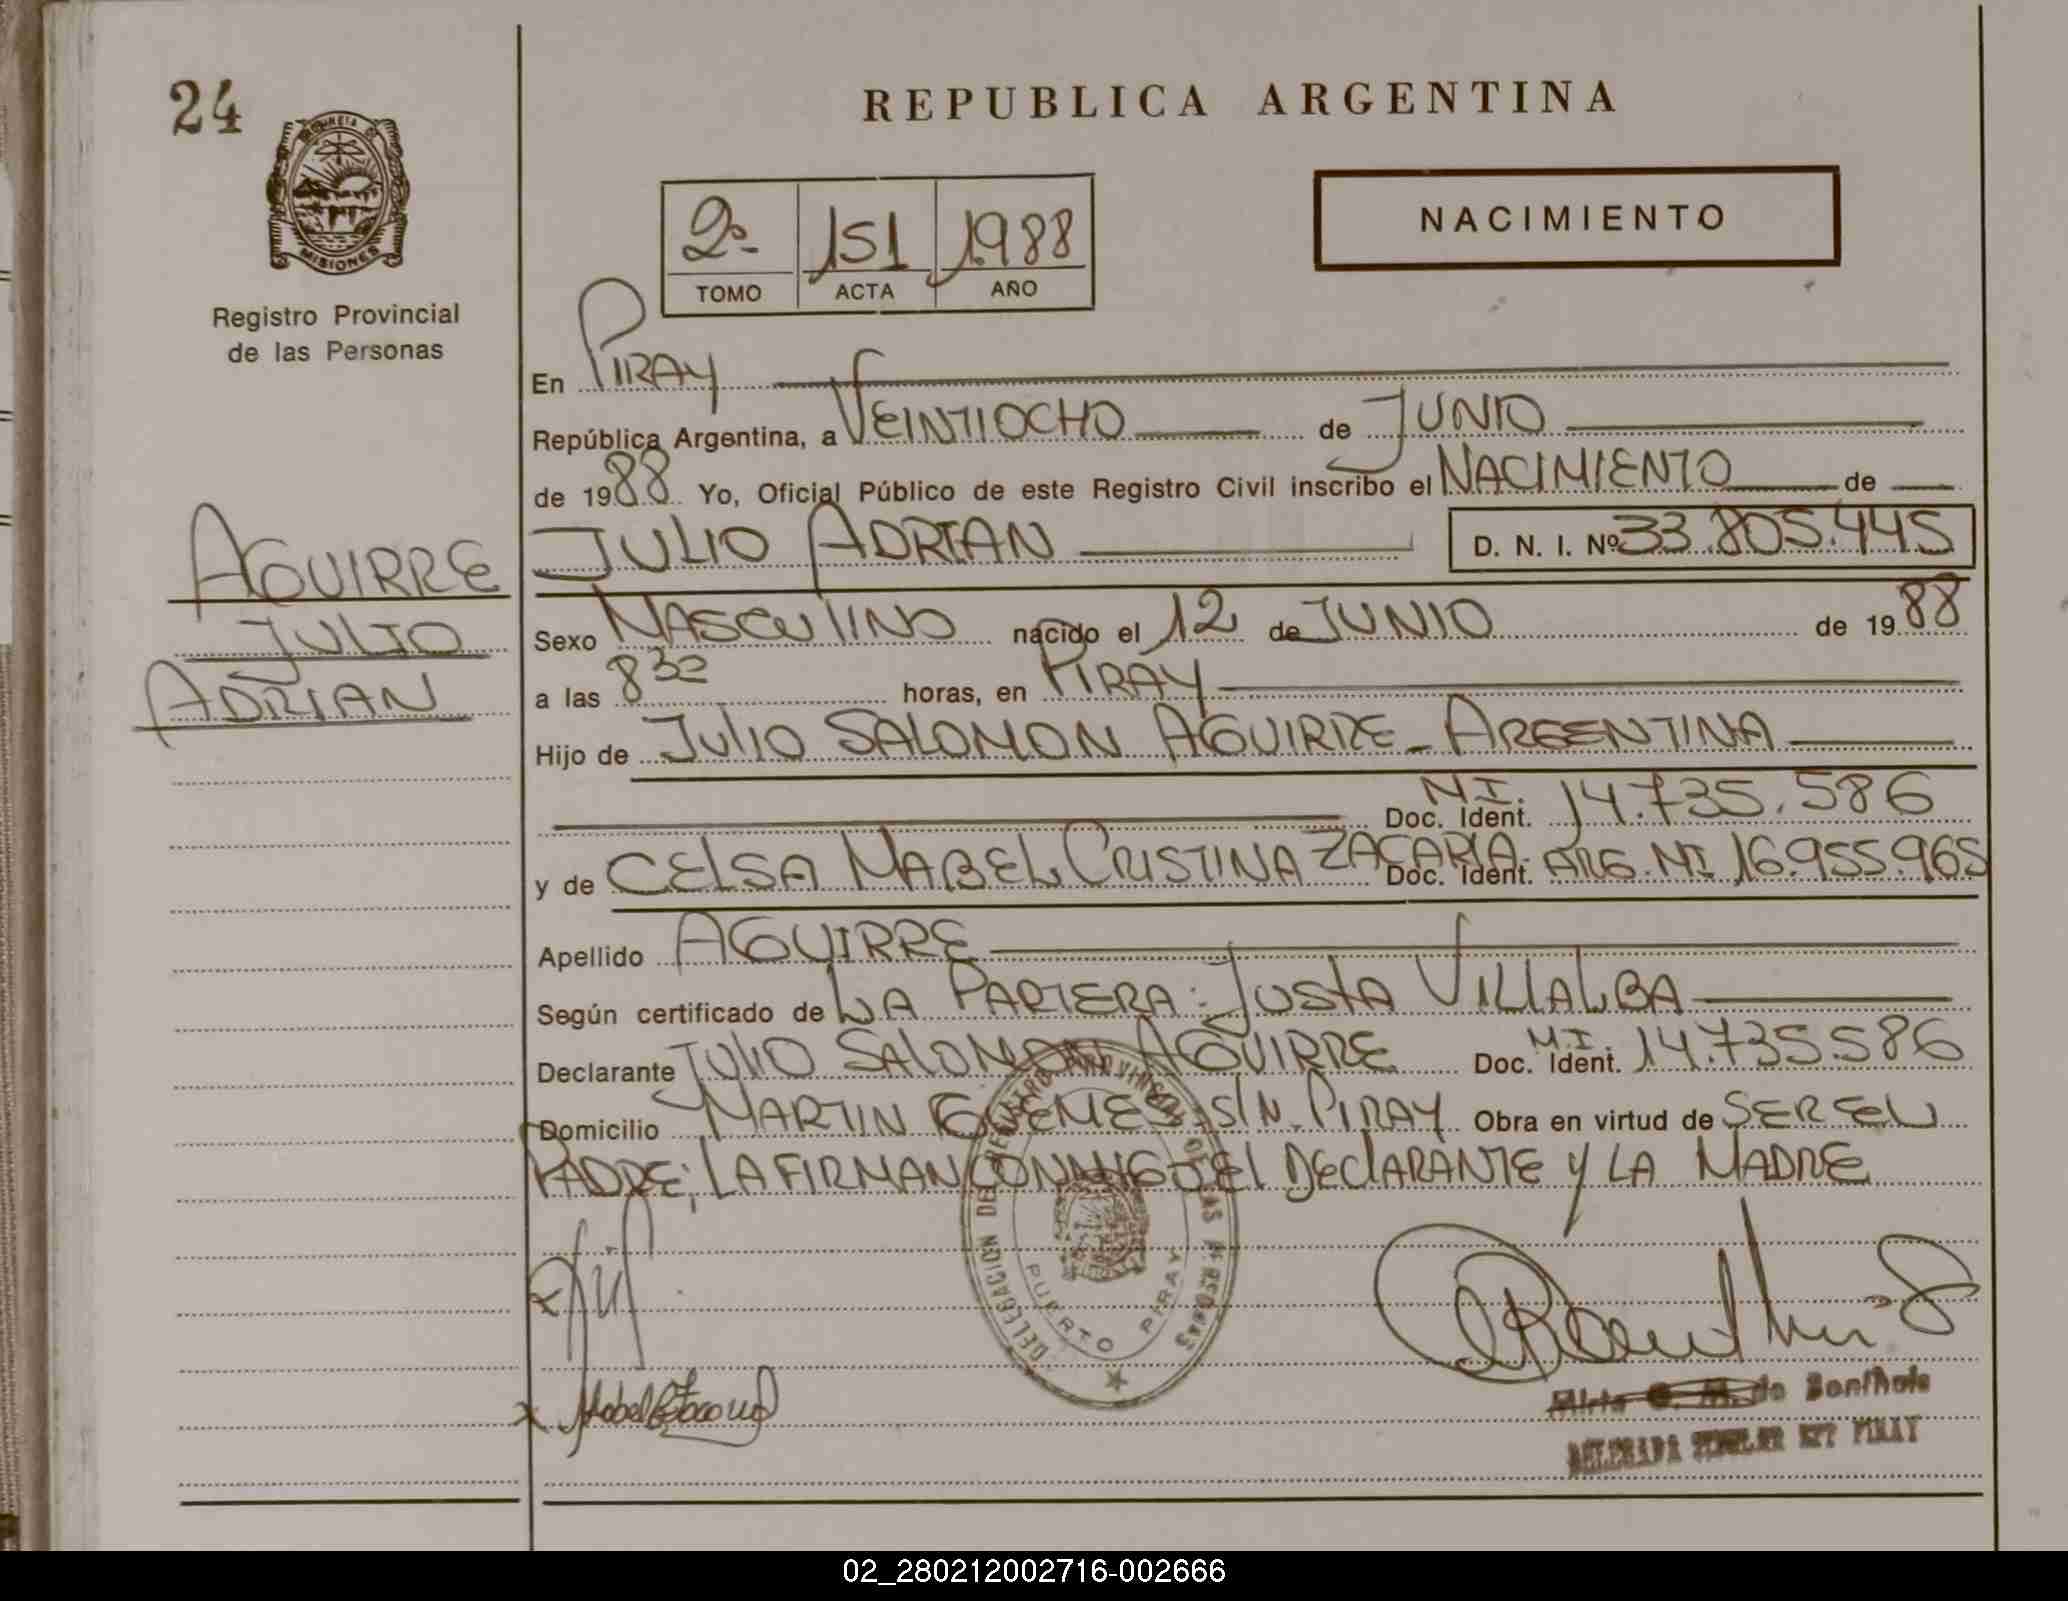 24
REPUBLICA ARGENTINA
PROVINCIA DE
MISIONES
Registro Provincial
de las Personas
2º 151 1988
TOMO ACTA AÑO
NACIMIENTO
En PIRAY
República Argentina, a VEINTIOCHO de JUNIO
de 1988 Yo, Oficial Público de este Registro Civil inscribo el NACIMIENTO de
AGUIRRE
JULIO
ADRIAN
JULIO ADRIAN D. N. I. Nº 33.805.445
Sexo MASCULINO nacido el 12 de JUNIO de 1988
a las 8 30 horas, en PIRAY
Hijo de JULIO SALOMON AGUIRRE - ARGENTINA
Doc. Ident. M.I. 14.735.586
y de CELSA MABEL CRISTINA ZACARIA. Doc. Ident. ARG. MI 16.955.965
Apellido AGUIRRE
Según certificado de LA PARTERA: JUSTA VILLALBA
Declarante JULIO SALOMON AGUIRRE Doc. Ident. M.I. 14.735.586
Domicilio MARTIN GUEMES S/N. PIRAY Obra en virtud de SER EL
PADRE; LA FIRMAN CONMIGO EL DECLARANTE Y LA MADRE
DELEGACION DEL REGISTRO PROVINCIAL DE LAS PERSONAS
PUERTO PIRAY
de
PIRAY
02_280212002716-002666